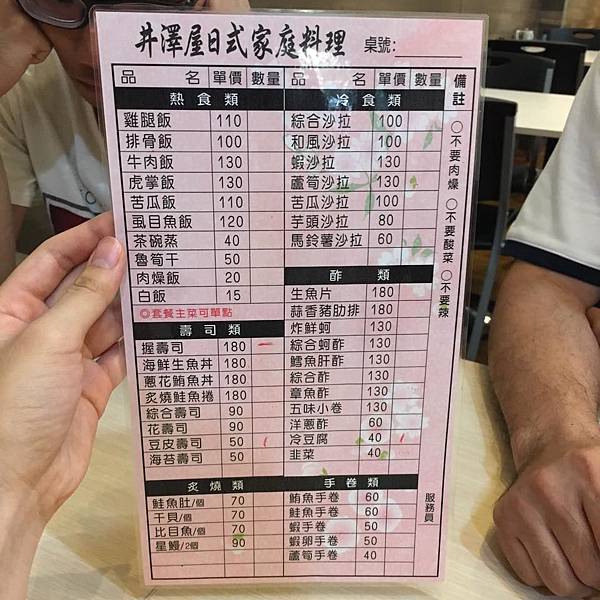 井澤屋日式家庭料理 桌號:
品 名 單價 數量 品 名 單價 數量 備註
熱食類
雞腿飯 110
排骨飯 100
牛肉飯 130
虎掌飯 130
苦瓜飯 110
虱目魚飯 120
茶碗蒸 40
魯筍干 50
肉燥飯 20
白飯 15
◎套餐主菜可單點
壽司類
握壽司 180
海鮮生魚丼 180
蔥花鮪魚丼 180
炙燒鮭魚捲 180
綜合壽司 90
花壽司 90
豆皮壽司 50
海苔壽司 50
炙燒類
鮭魚肚/個 70
干貝/個 70
比目魚/個 70
星鰻/2個 90
冷食類
綜合沙拉 100
和風沙拉 100
蝦沙拉 130
蘆筍沙拉 130
苦瓜沙拉 100
芋頭沙拉 80
馬鈴薯沙拉 60
酢類
生魚片 180
蒜香豬肋排 180
炸鮮蚵 130
綜合蚵酢 130
鱈魚肝酢 130
綜合酢 130
章魚酢 130
五味小卷 130
洋蔥酢 60
冷豆腐 40
韭菜 40
手卷類
鮪魚手卷 60
鮭魚手卷 60
蝦手卷 50
蝦卵手卷 50
蘆筍手卷 40
○不要肉燥 ○不要酸菜 ○不要辣
服務員